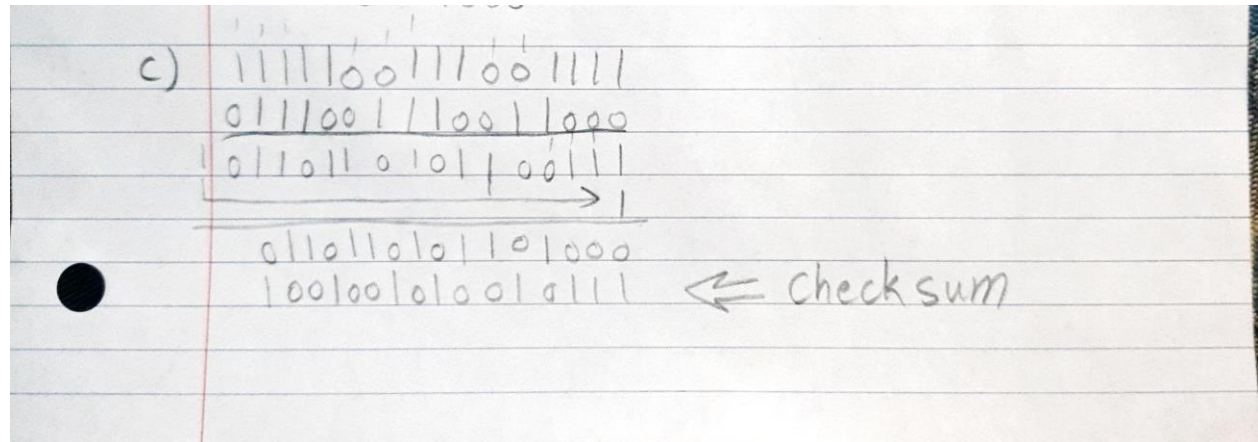 c) 1111100111001111
0111001110011000
10110110101100111
1
0110110101101000
1001001010010111 ⇐ checksum